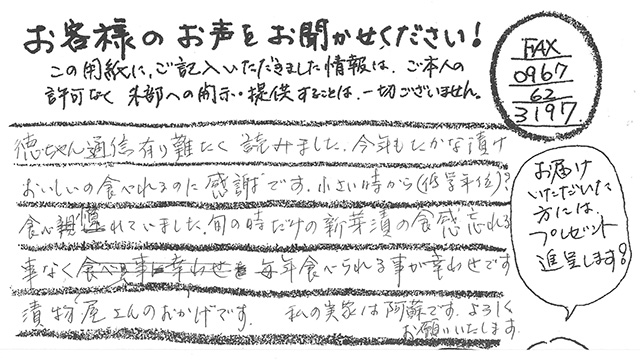 お客様のお声をお聞かせください!
この用紙に、ご記入いただきました情報は、ご本人の
許可なく外部への開示・提供することは、一切ございません。
FAX
0967
62
3197
徳ちゃん通信有り難たく読みました。今年もたかな漬け
おいしいの食べれるのに感謝です。小さい時から(低学年位)?
食べ慣れていました。旬の時だけの新芽漬の食感忘れる
事なく食べ事幸わせ毎年食べられる事が幸わせです
漬物屋さんのおかげです。私の実家は阿蘇です。よろしく
お願いいたします。
お届け
いただいた
方には、
プレゼント
進呈します?